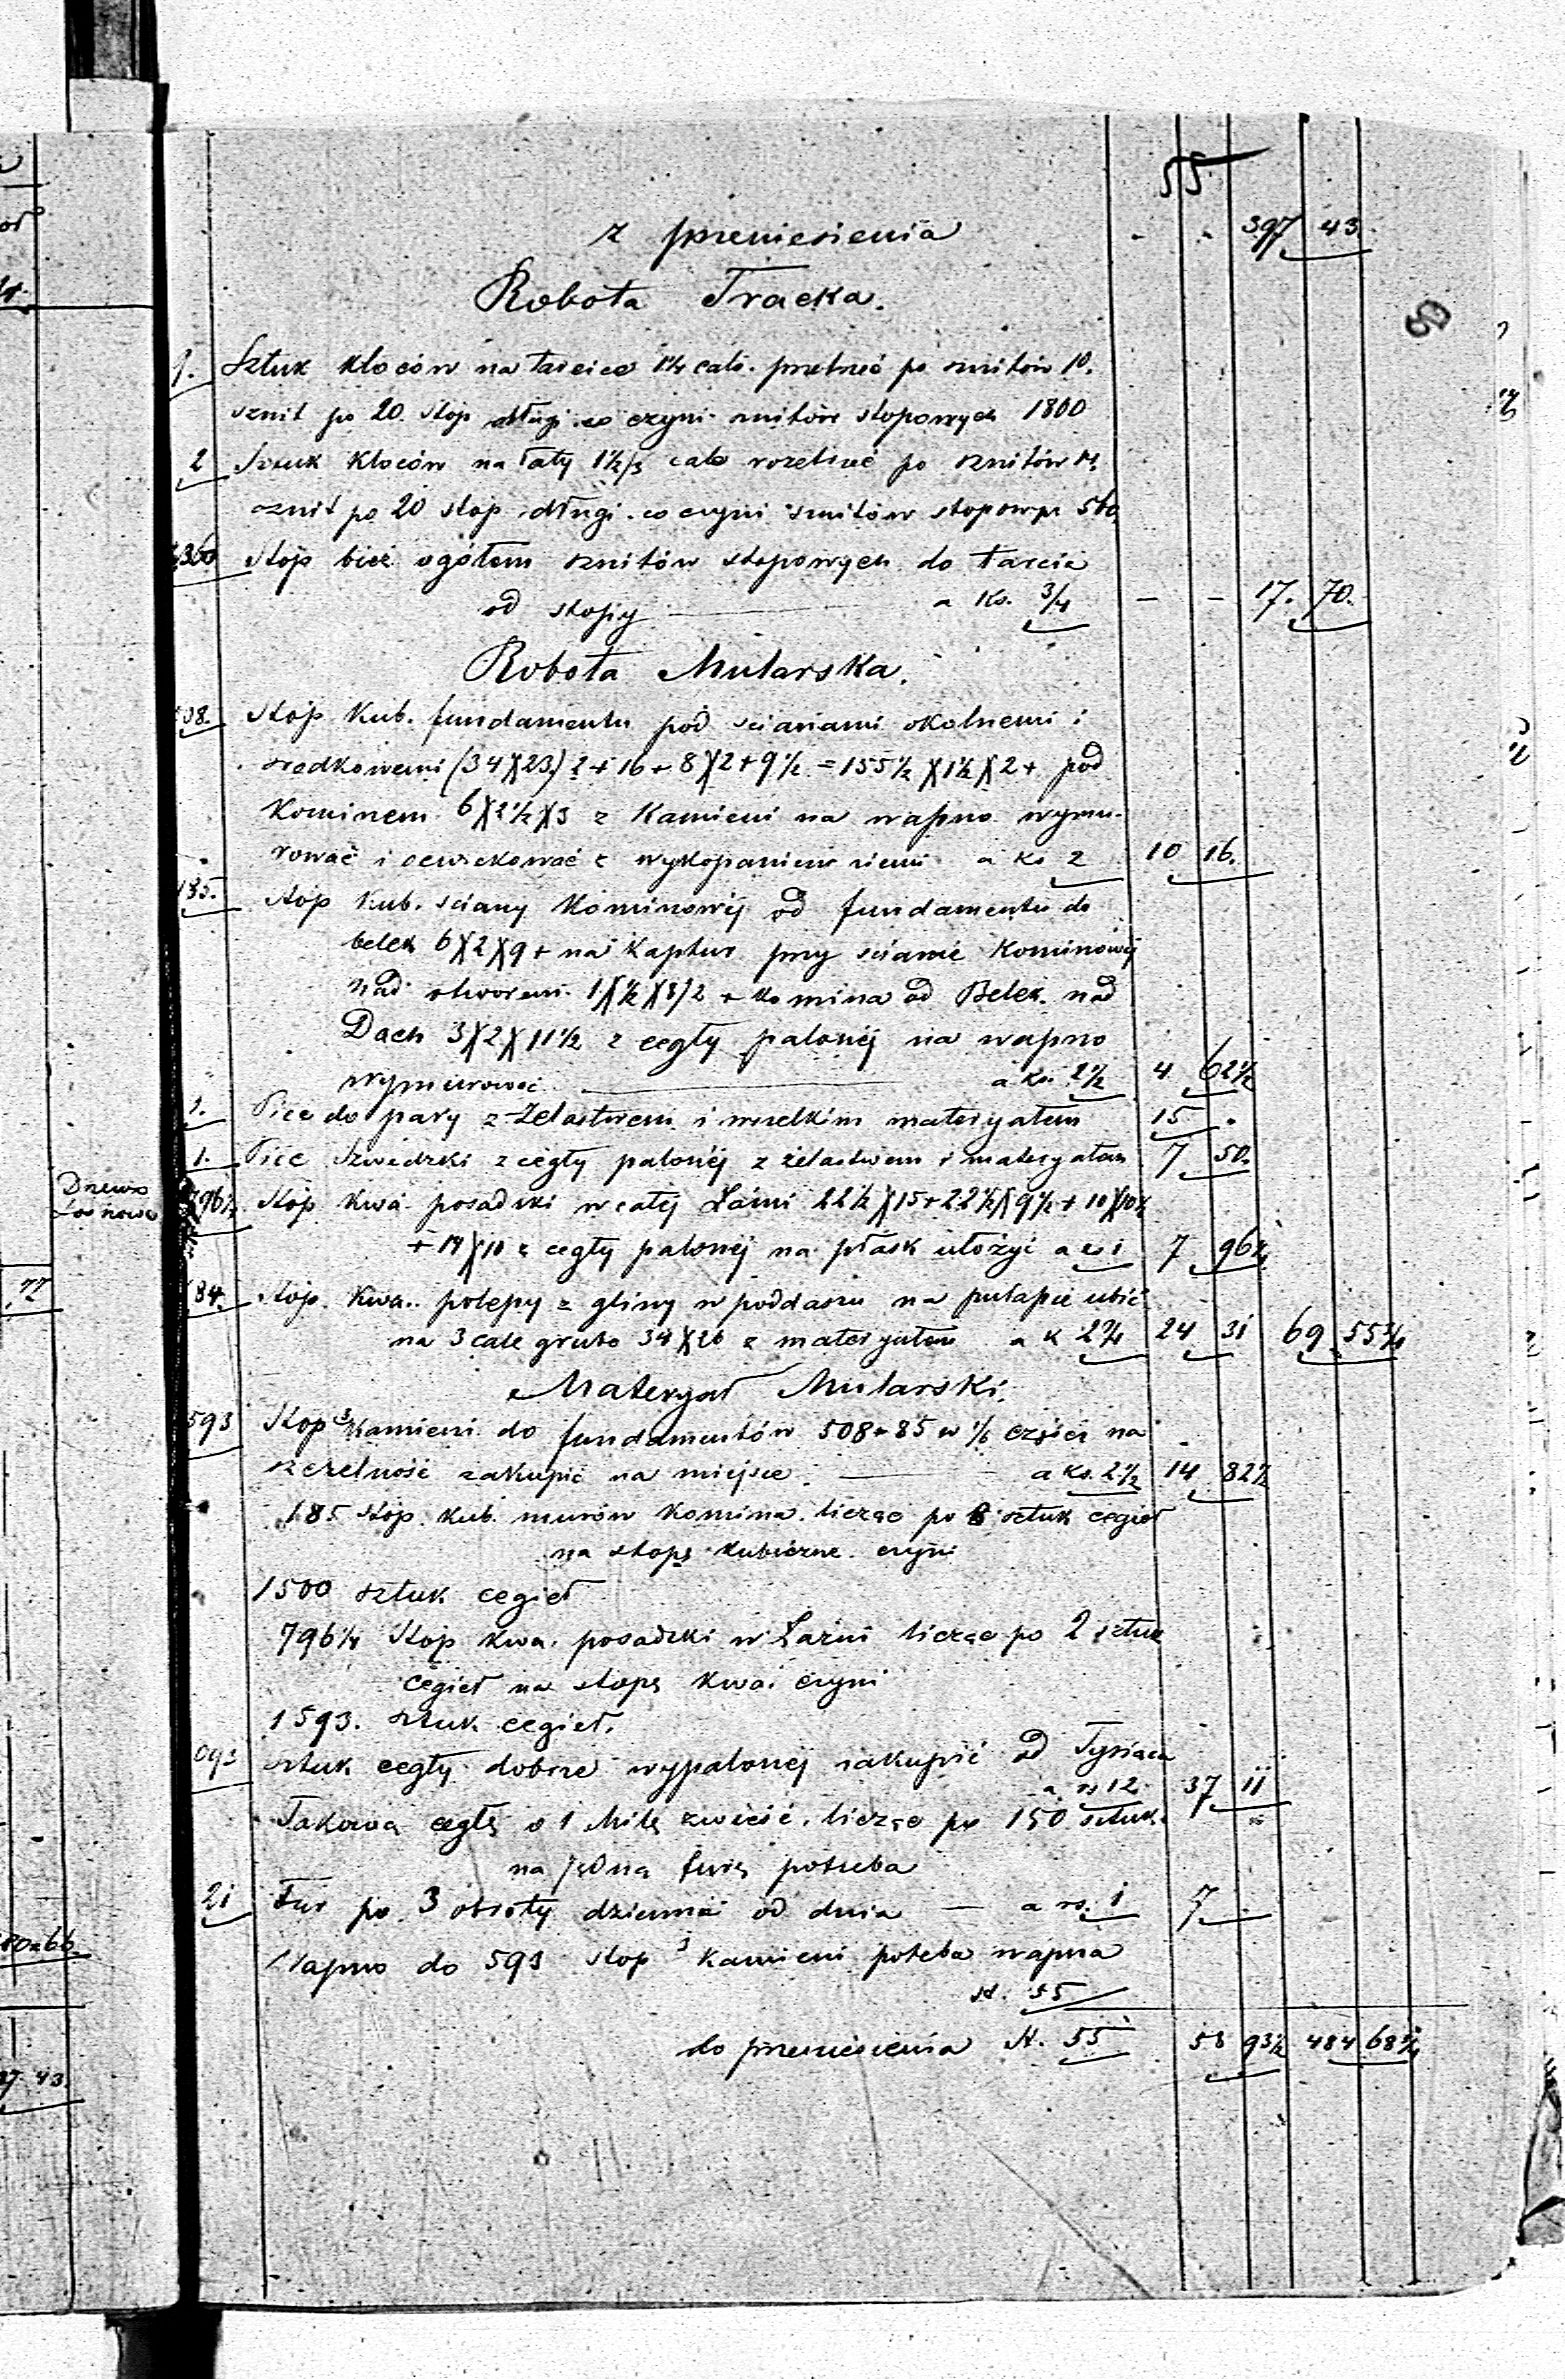 55
z preniesienia - - 397 43
Robota Tracka.
9. Sztuk kloców na tarcice 1¼ calo. pretrzeć po sznitów 10.
sznit po 20 stóp długi co czyni snitów stopowych 1800
2 Sztuk kloców na łaty 1½/3 calo rozetrzeć po sznitów 14
sznit po 20 stop długi co czyni sznitów stopowych 560
2360 Stóp bież ogółem sznitów stopowych do tarcia
od stopy a Ko. 3/4 - - 17. 70.
Robota Mularska.
508. Stóp Kub. fundamentu pod scianami okolnemi i
srodkowemi (34)(23) 2 + 16 + 8)(2 + 9½ = 155½)(1½)(2 + pod
Kominem 6)(2½)(3 z Kamieni na wapno wymu-
rować i z wykopaniem ziemi a ko 2 10 16.
185. Stóp Kub. sciany Kominowéj od fundamentu do
belek 6)(2)(9 + na Kaptur przy scianie Kominowéj
nad otworem 1)(½)(8)2 + komina od Belek nad
Dach 3)(2)(11½ z cegły palonéj na wapno
wymurować a Ko. 2½ 4 62½
1. Piec do pary z żelastwem i wszelkim materyałem 15 .
1. Piec Szwedzki z cegły palonéj z żelastwem i materyałem 7 50.
Drzewo
Sosnowe
796¼ Stóp Kwa. posadzki w całéj Łaźni 22½)(15 + 22½)(9½ + 10)(10½
+ 14)(10 z cegły palonéj na płask ułożyć a ko 1 7 96¼
884. Stóp Kwa. polepy z gliny w poddaszu na pułapie ubić
na 3 cale grubo 34)(26 z materyałem a k 2¾ 24 31 69 55¾
Materyał Mularski.
593 Stop ³ Kamieni do fundamentów 508 + 85 w 1/6 części na
szczelność zakupić na miejsce a Ko. 2½ 14 82½
185 Stóp Kub. murów Komina licząc po 8 sztuk cegieł
na stopę kubiczne czyni
1500 sztuk cegieł
796¼ Stóp Kwa. posadzki w Łaźni licząc po 2 sztuk
cegieł na stopę Kwa. czyni
1593. sztuk cegieł.
3093 sztuk cegły dobrze wypalonéj zakupić od Tysiąca
a rs 12 37 11
Takową cegłę o 1 Milę zwieść licząc po 150 sztuk
na jedną furę potrzeba
21 Fur po 3 obroty dziennie od dnia - a rs. 1 7 -
Wapno do 593 stop ³ Kamieni potrzeba wapna
st. 55
do preniesienia st. 55 58 93½ 484 68¾